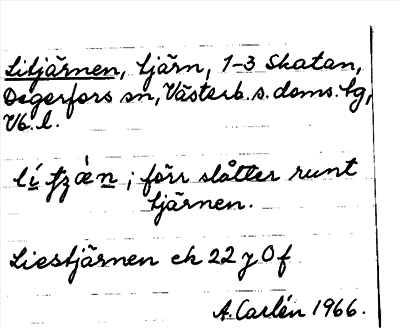 Litjärnen, tjärn, 1-3 Skatan,
Degerfors sn, Västerb. s. doms. hg,
Vb. l.
; förr slåtter runt
tjärnen.
Liestjärnen ek 22 y 0 f
A. Carlén 1966.